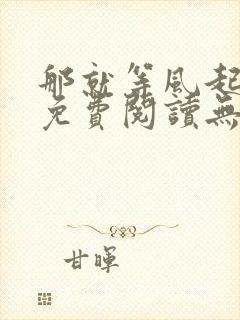 那就等风起
免費閱讀無
甘暉